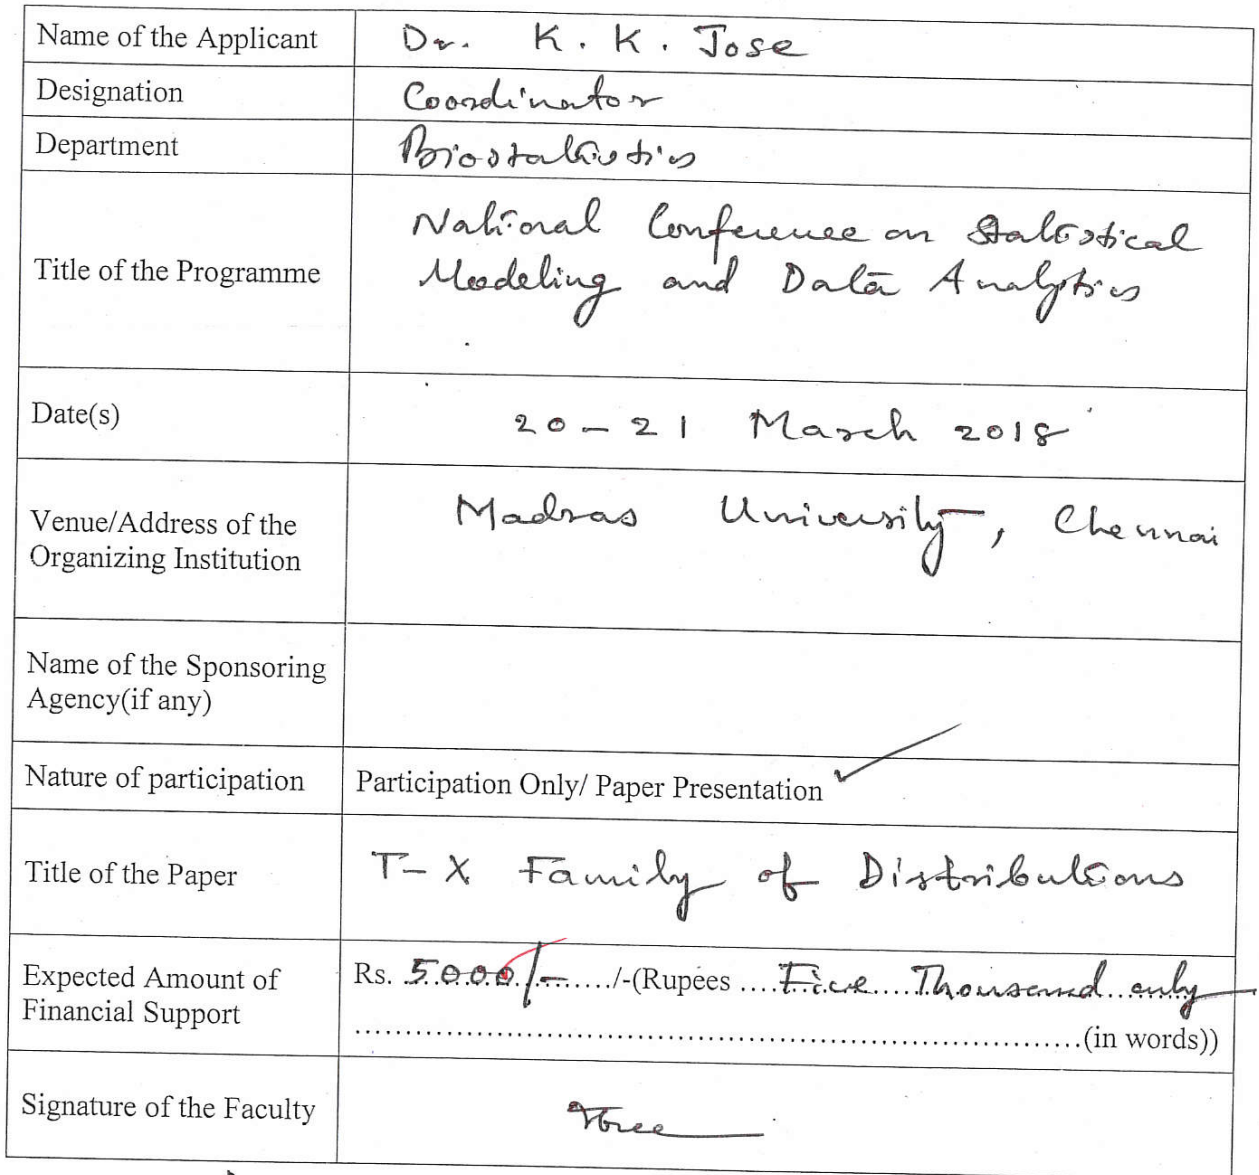 Name of the Applicant Dr. K. K. Jose
Designation Coordinator
Department Biostatistics
Title of the Programme National Conference on Statistical
Modeling and Data Analytics
Date(s) 20 - 21 March 2018
Venue/Address of the Madras University, Chennai
Organizing Institution
Name of the Sponsoring
Agency(if any)
Nature of participation Participation Only/ Paper Presentation ✓
Title of the Paper T-X Family of Distributions
Expected Amount of Rs. 5000/- ...../-(Rupees .... Five Thousand only
Financial Support ..........(in words))
Signature of the Faculty